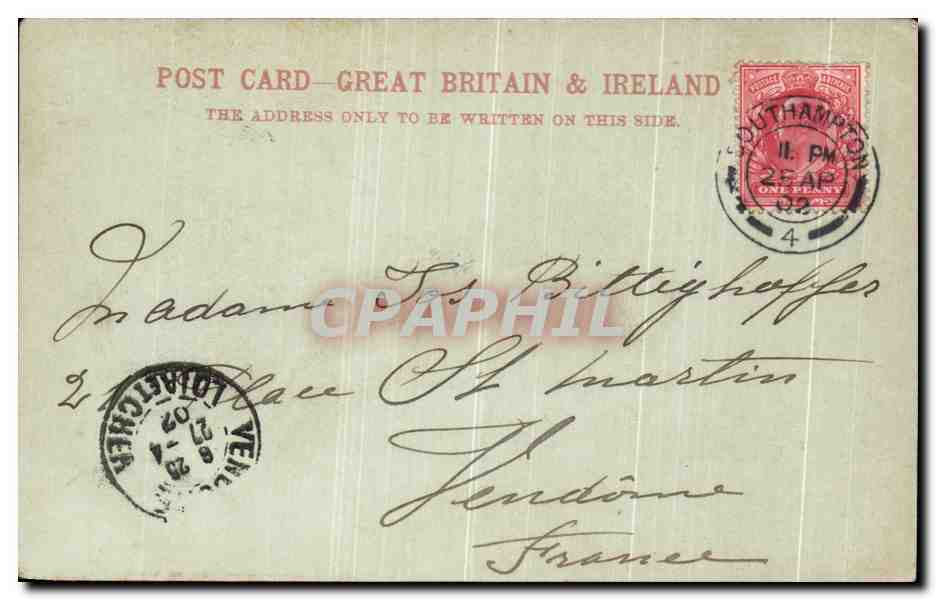 POST CARD—GREAT BRITAIN & IRELAND
THE ADDRESS ONLY TO BE WRITTEN ON THIS SIDE.
POSTAGE & REVENUE
ONE PENNY
SOUTHAMPTON
11. PM
25 AP
02
4
Madame Jos Bittighoffer
21 Place St Martin
Vendôme
France
CPAPHIL
LOIR-ET-CHER